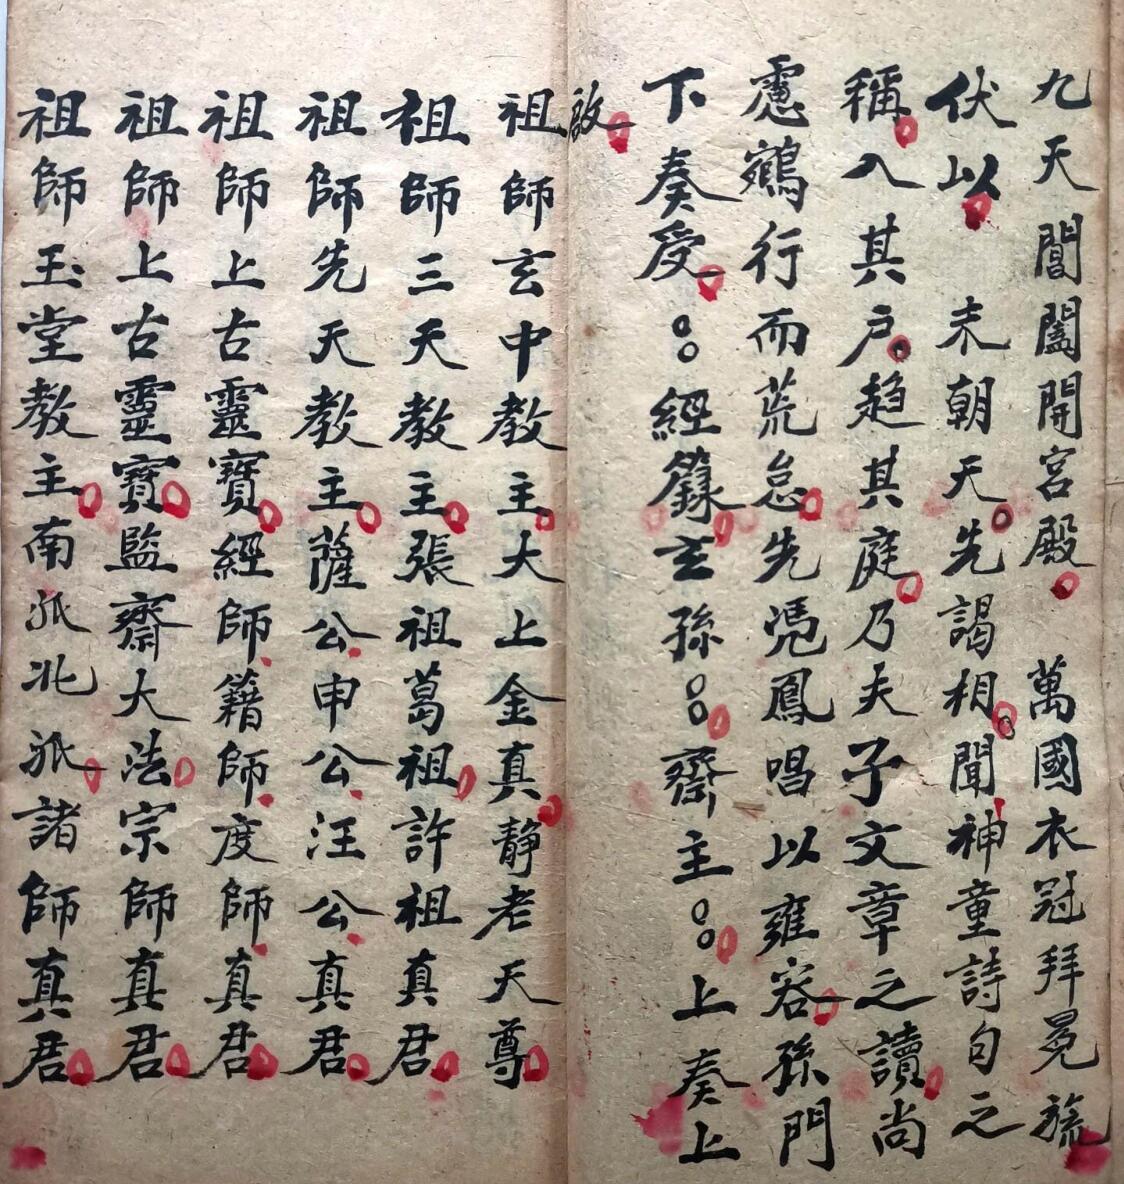 九天閶闔開宮殿萬國衣冠拜冕旒
伏以未朝天先謁相聞神童詩句之
稱入其户趋其庭乃夫子文章之讀尚
慮鵷行而荒怠先凴鳳唱以雍容孫門
下奏受○○經籙玄孫○○齋主○○上奏上
啟
祖師玄中教主大上金真靜老天尊
祖師三天教主張祖葛祖許祖真君
祖師先天教主薩公申公汪公真君
祖師上古靈寶經師籍師度師真君
祖師上古靈寶監齋大法宗師真君
祖師玉堂教主南派北派諸師真君